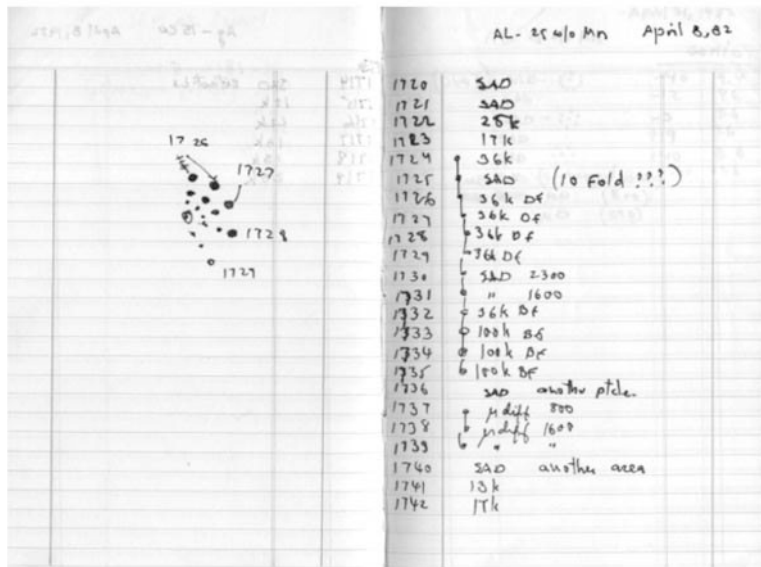 1726
1727
1728
1729
AL-25 w/o Mn April 8, 82
1720 SAD
1721 SAD
1722 25k
1723 17k
1724 36k
1725 SAD (10 Fold ???)
1726 36k Df
1727 36k Df
1728 36k Df
1729 36k Df
1730 SAD 2300
1731 " 1600
1732 36k Bf
1733 100k Bf
1734 100k Df
1735 100k BF
1736 SAD another ptcle.
1737 μ diff 800
1738 μ diff 1600
1739 " "
1740 SAD another area
1741 13k
1742 17k